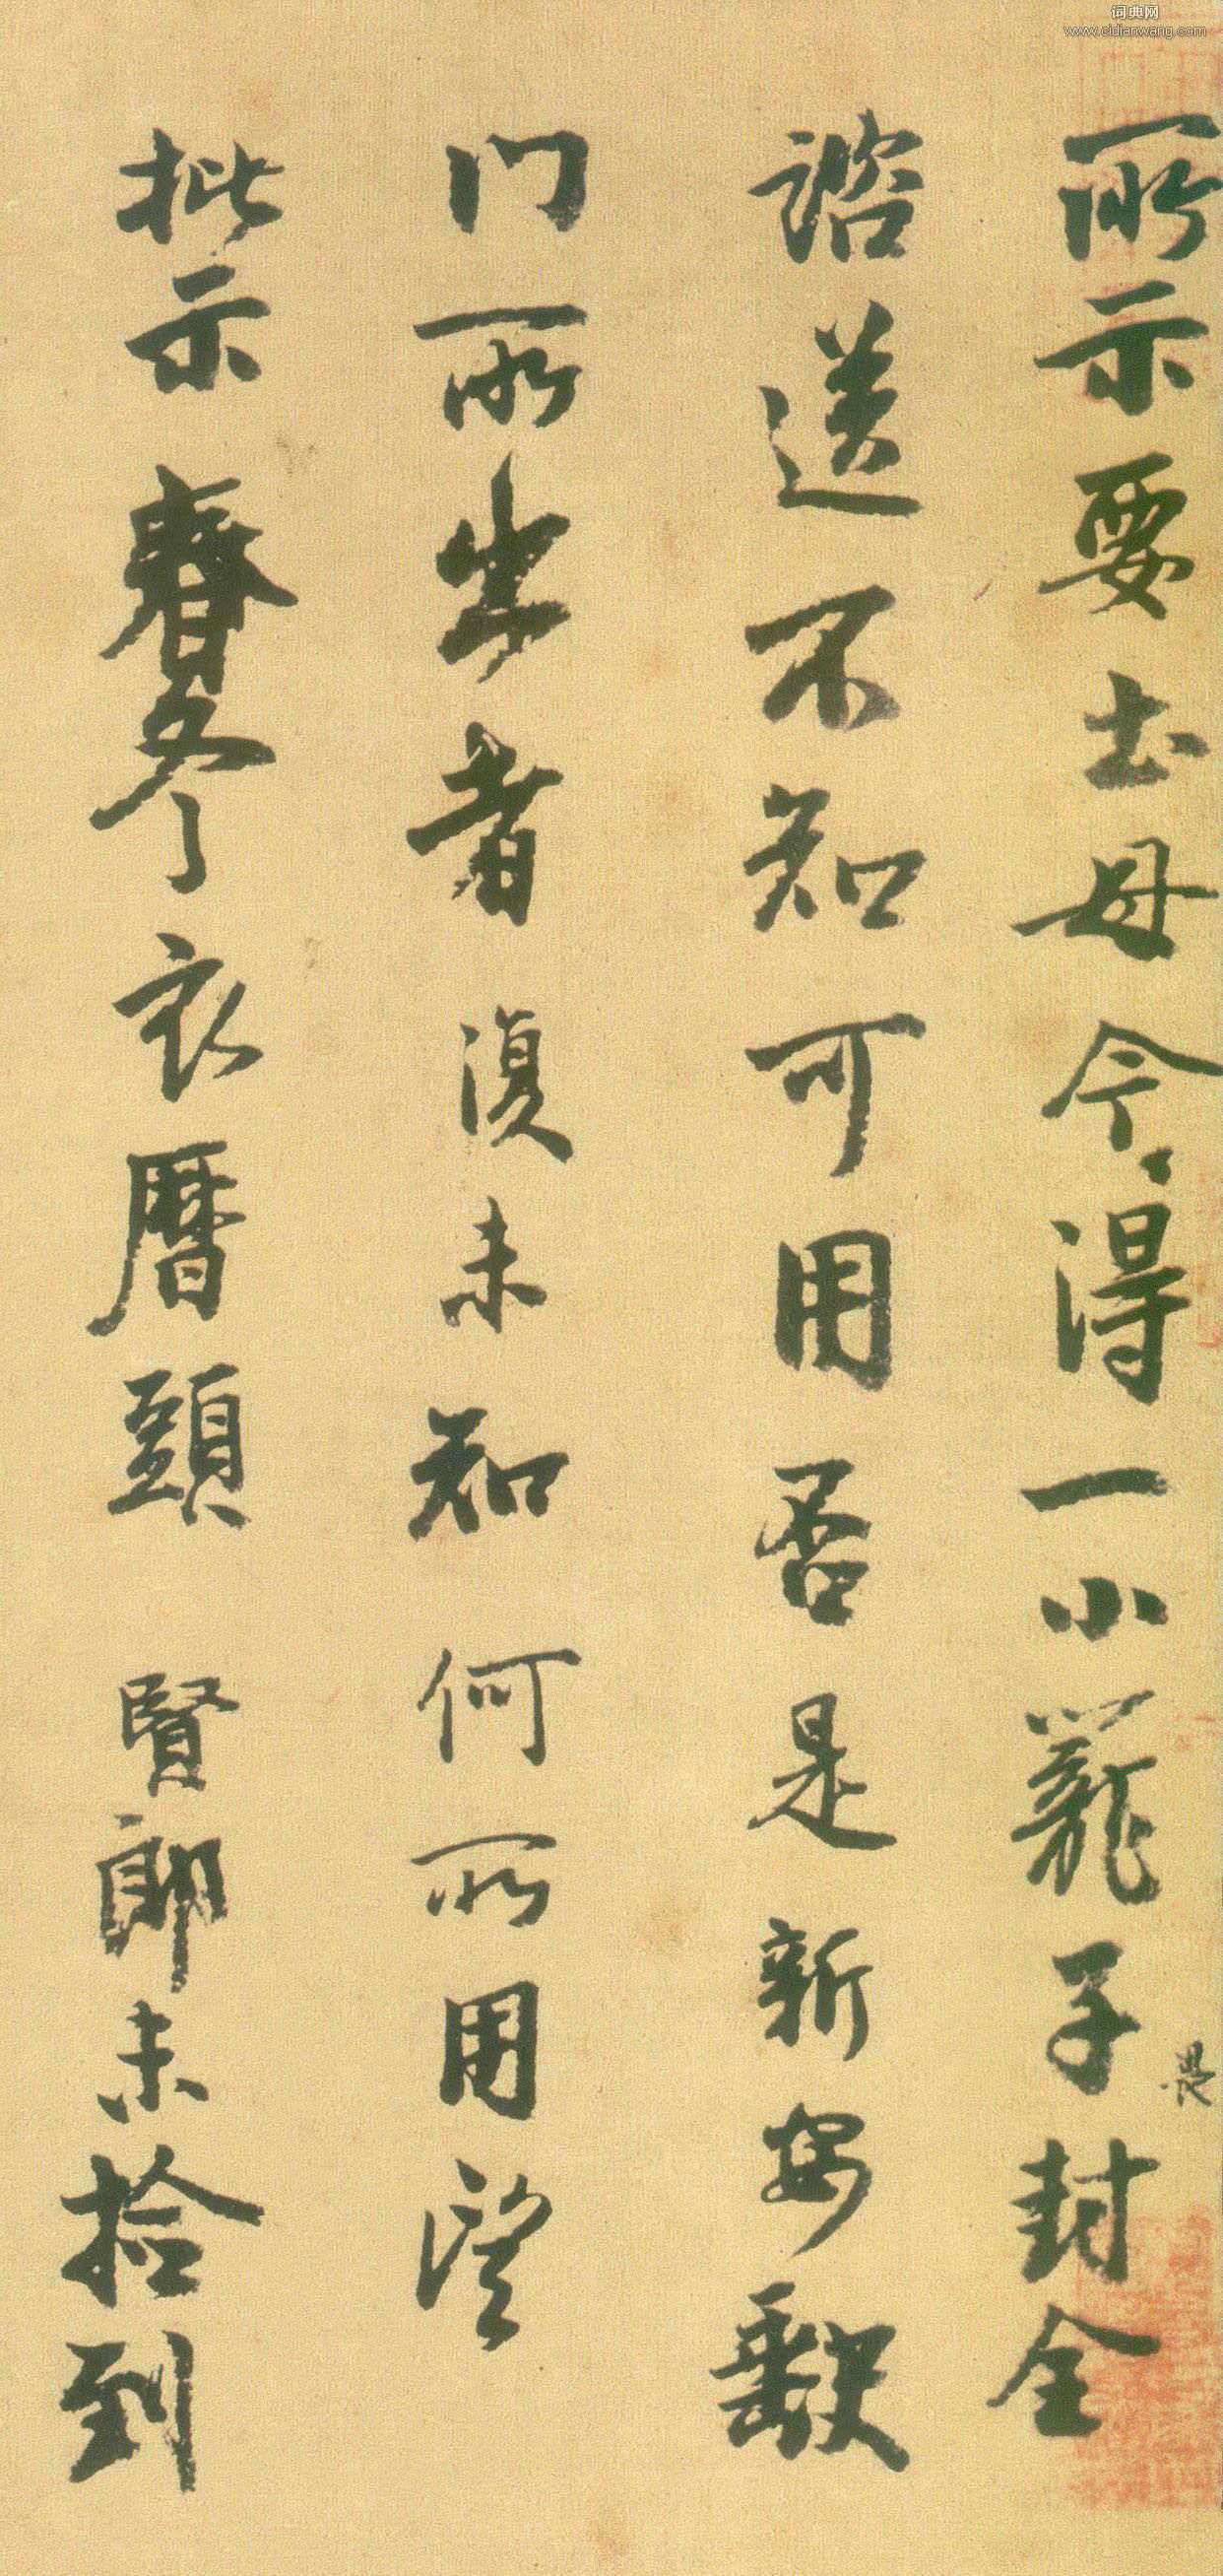 词典网
www.cidianwang.com
所示要土母今得一小籠子封全
是
諮送不知可用否是新安
门所出者復未知何所用望
批示春冬衣曆頭賢郎未拾到